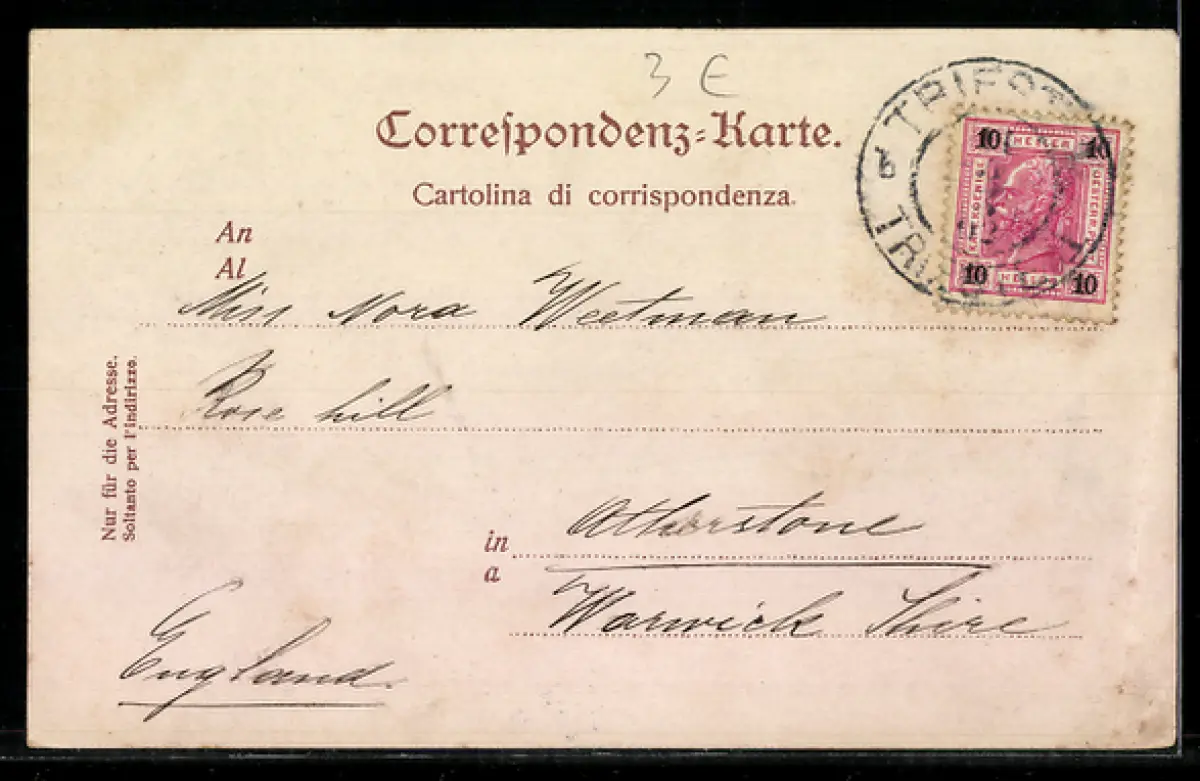 3 €
Correspondenz-Karte.
Cartolina di corrispondenza.
An
Al
Miss Nora Weetman
Rose hill
in
a
Atherstone
Warwick Shire
England.
Nur für die Adresse.
Soltanto per l'indirizzo.
TRIEST
b
10 HELLER 10
10 HELLER 10